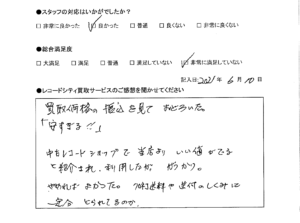 ●スタッフの対応はいかがでしたか？
□非常に良かった □良かった □普通 □良くない □非常に良くない
●総合満足度
□大満足 □満足 □普通 □満足していない □非常に満足していない
記入日 2021年 6月 10日
●レコードシティ買取サービスのご感想を聞かせてください
買取価格の振込を見て おどろいた。
「安すぎる!!」
中古レコードショップで 当店より いい値がでる
と紹介され、利用したが がっかり。
やめれば よかった。 送料や 送付のしくみに
とられてるのか、